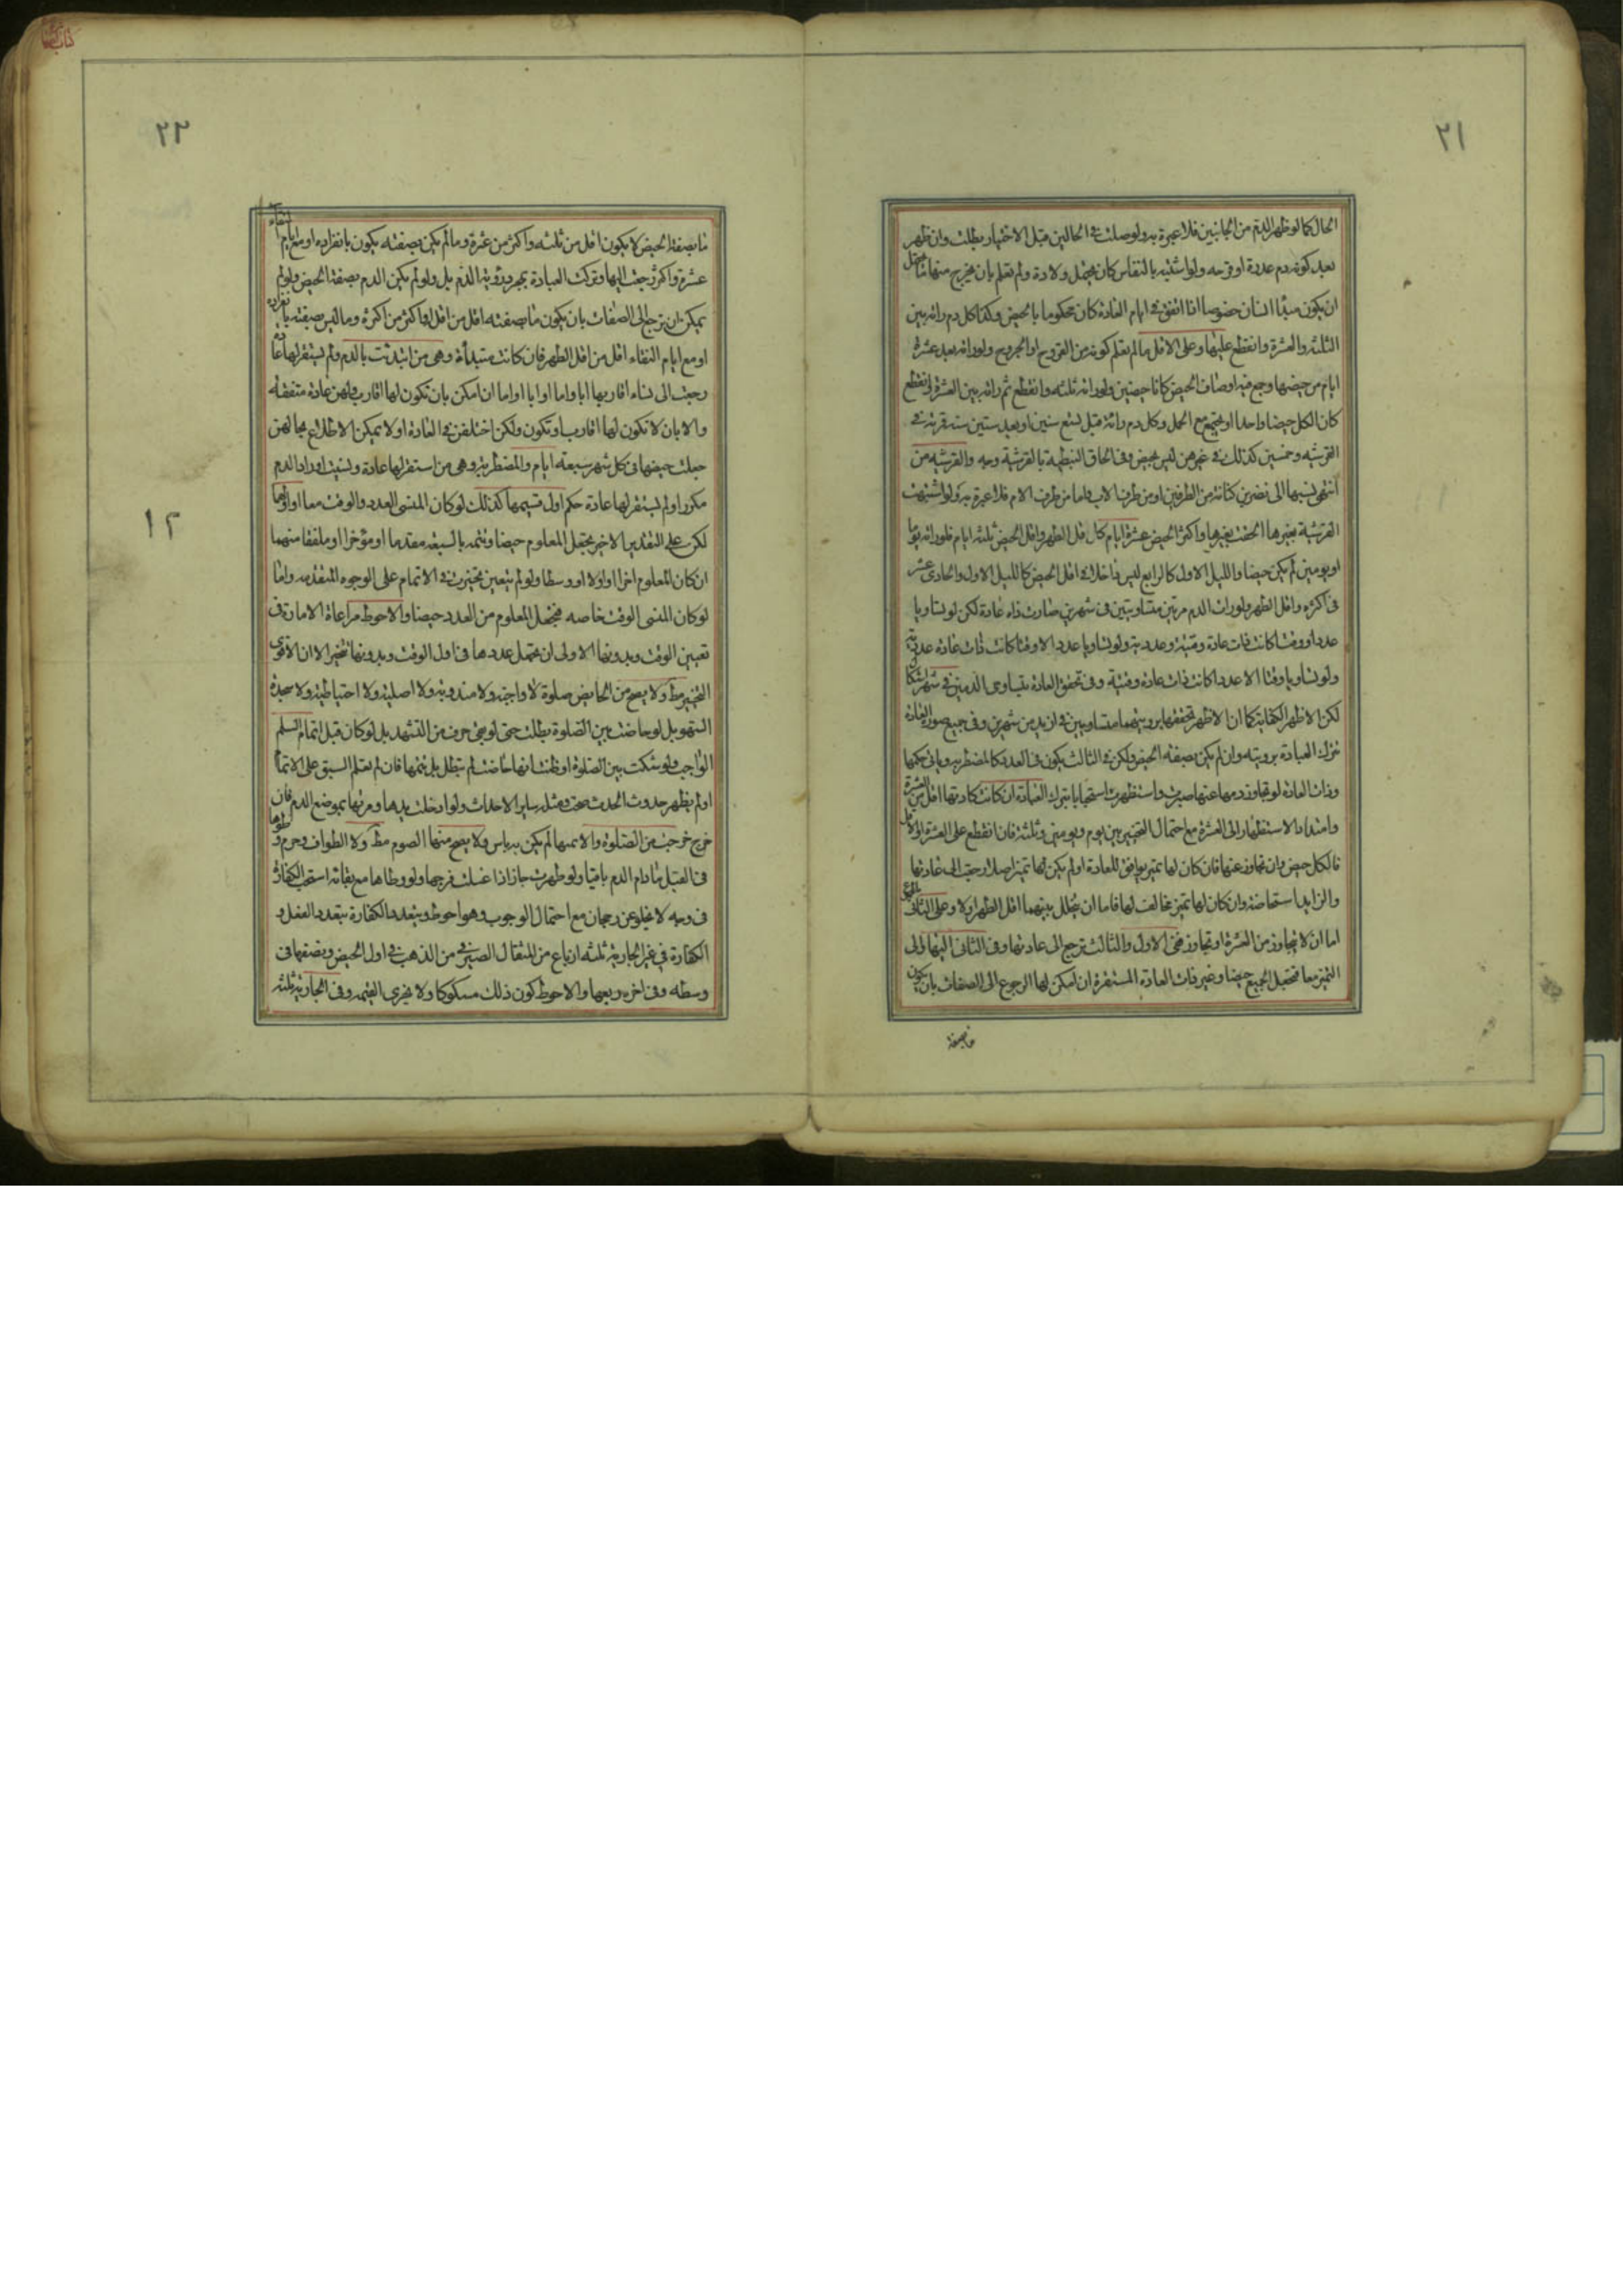 ٢١
الحال كما لو ظهر الدم من الجانبين فلا عبرة به ولو صلت في الحالين قبل الاختبار بطلت وان ظهر
بعد كونه دم عذرة او قرحه ولو اشتبه بالنفاس كان يحتمل ولادة ولم تعلم بان يخرج منها ما يحتمل
ان يكون مبدا انسان خصوصا اذا اتفق في ايام العادة كان محكوما بالحيض وكذا كل دم راته بين
الثلثه والعشرة وانقطع عليها وعلى الاقل ما لم يعلم كونه من القروح او الجروح ولو راته بعد عشرة
ايام من حيضها وجمع فيه اوصاف الحيض كانا حيضين ولو راته ثلثه وانقطع ثم راته بين العشرة وانقطع
كان الكل حيضا واحدا او يجتمع مع الحمل وكل دم راته قبل تسع سنين او بعد ستين سنه قرية في
القرشيه وخمسين كذلك في غيرهن ليس بحيض وفي الحاق النبطية بالقرشية وجه والقرشيه من
انتهى نسبها الى نضر بن كنانه من الطرفين او من طرف الاب واما من طرف الام فلا عبرة به ولو اشتبهت
القرشية بغيرها الحقت بغيرها واكثر الحيض عشرة ايام كاقل الطهر واقل الحيض ثلثه ايام فلو راته يوما
او يومين لم يكن حيضا والليل الاول كالرابع ليس داخلا في اقل الحيض كالليل الاول والحادي عشر
في اكثره واقل الطهر ولو رات الدم مرتين متساويتين في شهرين صارت ذاه عادة لكن لو تساويا
عددا ووقتا كانت ذات عادة وقتية وعددية ولو تساويا عددا لا وقتا كانت ذات عادة عددية
ولو تساويا وقتا لا عددا كانت ذات عادة وقتية وفي تحقق العادة بتساوي الدمين في شهر اشكال
لكن الاظهر الكفاية كما ان الاظهر تحققها برويتهما متساويين في ازيد من شهرين وفي جميع صور العادة
تترك العبادة برويته وان لم يكن بصفة الحيض ولكن في الثالث يكون في العدد كالمضطربه وياتي حكمها
وذات العادة لو تجاوز دمها عنها صبرت واستظهرت استحبابا بترك العبادة ان كانت عادتها اقل من العشرة
وامتداد الاستظهار الى العشرة مع احتمال التخيير بين يوم ويومين وثلثة فان انقطع على العشرة او الاقل
فالكل حيض وان تجاوز عنها فان كان لها تميز يوافق للعادة او لم يكن لها تميز اصلا رجعت الى عادتها
والزايد استحاضه وان كان لها تميز مخالف لها فاما ان يخلل بينهما اقل الطهر اولا وعلى الثاني
اما ان لا يتجاوز من العشرة او تجاوز ففي الاول والثالث ترجع الى عادتها وفي الثاني اليها والى
التميز معا فتجعل الجميع حيضا وغير ذات العادة المستقرة ان امكن لها الرجوع الى الصفات بان يكون
ما بصفة
٢٢
ما بصفة الحيض لا يكون اقل من ثلثه واكثر من عشرة وما لم يكن بصفته يكون بانفراده او مع ايام النقاء
عشرة واكثر رجعت اليها وتركت العبادة بمجرد رؤية الدم بل ولو لم يكن الدم بصفة الحيض ولو لم
يمكن ان ترجع الى الصفات بان يكون ما بصفته اقل من اقله او اكثر من اكثره وما ليس بصفته بانفراده
او مع ايام النقاء اقل من اقل الطهر فان كانت مبتدأة وهي من ابتدئت بالدم ولم يستقر لها عادة
رجعت الى نساء اقاربها ابا واما او ابا او اما ان امكن بان تكون لها اقارب ولهن عادة متفقه
والا بان لا تكون لها اقارب او تكون ولكن اختلفن في العادة او لا يمكن الاطلاع بحالهن
جعلت حيضها في كل شهر سبعه ايام والمضطربة وهي من استقر لها عادة ونسيت او راد الدم
مكررا ولم يستقر لها عادة حكم اول قسيمها كذلك لو كان المنسى العدد والوقت معا او اولهما
لكن على التقدير الاخير تجعل المعلوم حيضا وتتمه بالسبعه مقدما او مؤخرا او ملفقا منهما
ان كان المعلوم اخرا او اولا او وسطا ولو لم يتعين تخيرت في الاتمام على الوجوه المتقدمه واما
لو كان المنسى الوقت خاصه فتجعل المعلوم من العدد حيضا والاحوط مراعاة الامارة في
تعيين الوقت وبدونها الاولى ان تجعل عددها في اول الوقت وبدونها تتخير الا ان الاقوى
التخيير مط ولا يصح من الحايض صلوة لا واجبه ولا مندوبة ولا اصلية ولا احتياطية ولا سجدة
السهو بل لو حاضت بين الصلوة بطلت حتى لو بقى حرف من التشهد بل لو كان قبل اتمام السلام
الواجب ولو شكت بين الصلوة او ظنت انها حاضت لم تبطل بل تتمها فان لم تعلم السبق على الاتمام
او لم يظهر حدوث الحدث صحت ومثله ساير الاحداث ولو ادخلت يدها ومرتها بموضع الدم فان
خرج خرجت من الصلوة والا تمتها لم يكن به باس ولا يصح منها الصوم مط ولا الطواف وحرم وطوها
في القبل ما دام الدم باقيا ولو طهرت جاز اذا غسلت فرجها ولو وطاها مع بقائه استحب الكفارة
في وجه لا يخلو عن رجحان مع احتمال الوجوب وهو احوط ويتعدد الكفارة بتعدد الفعل و
الكفارة في غير الجارية ثلثه ارباع من المثقال الصيرفي من الذهب في اول الحيض ونصفها في
وسطه وفي اخره ربعها والاحوط كون ذلك مسكوكا ولا يجزي القيمه وفي الجارية ثلثه
١٢